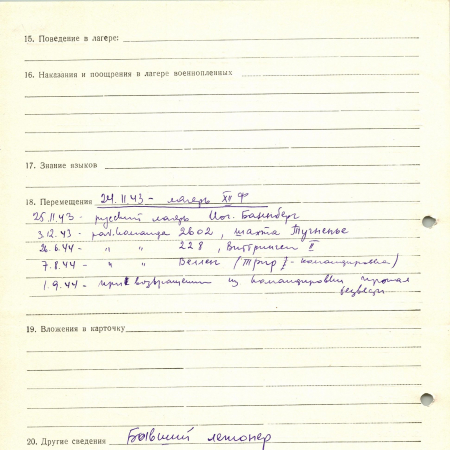 15. Поведение в лагере:
16. Наказания и поощрения в лагере военнопленных
17. Знание языков
18. Перемещения 24.11.43 - лагерь XII Ф
25.11.43 - русский лагерь Иог. Баннберг
3.12.43 - раб. команда 2602, шахта
26.6.44 - " " 228, II
7.8.44 - " " (Трир I - командировка)
1.9.44 - при возвращении из командировки пропал
безвести
19. Вложения в карточку
20. Другие сведения Бывший легионер